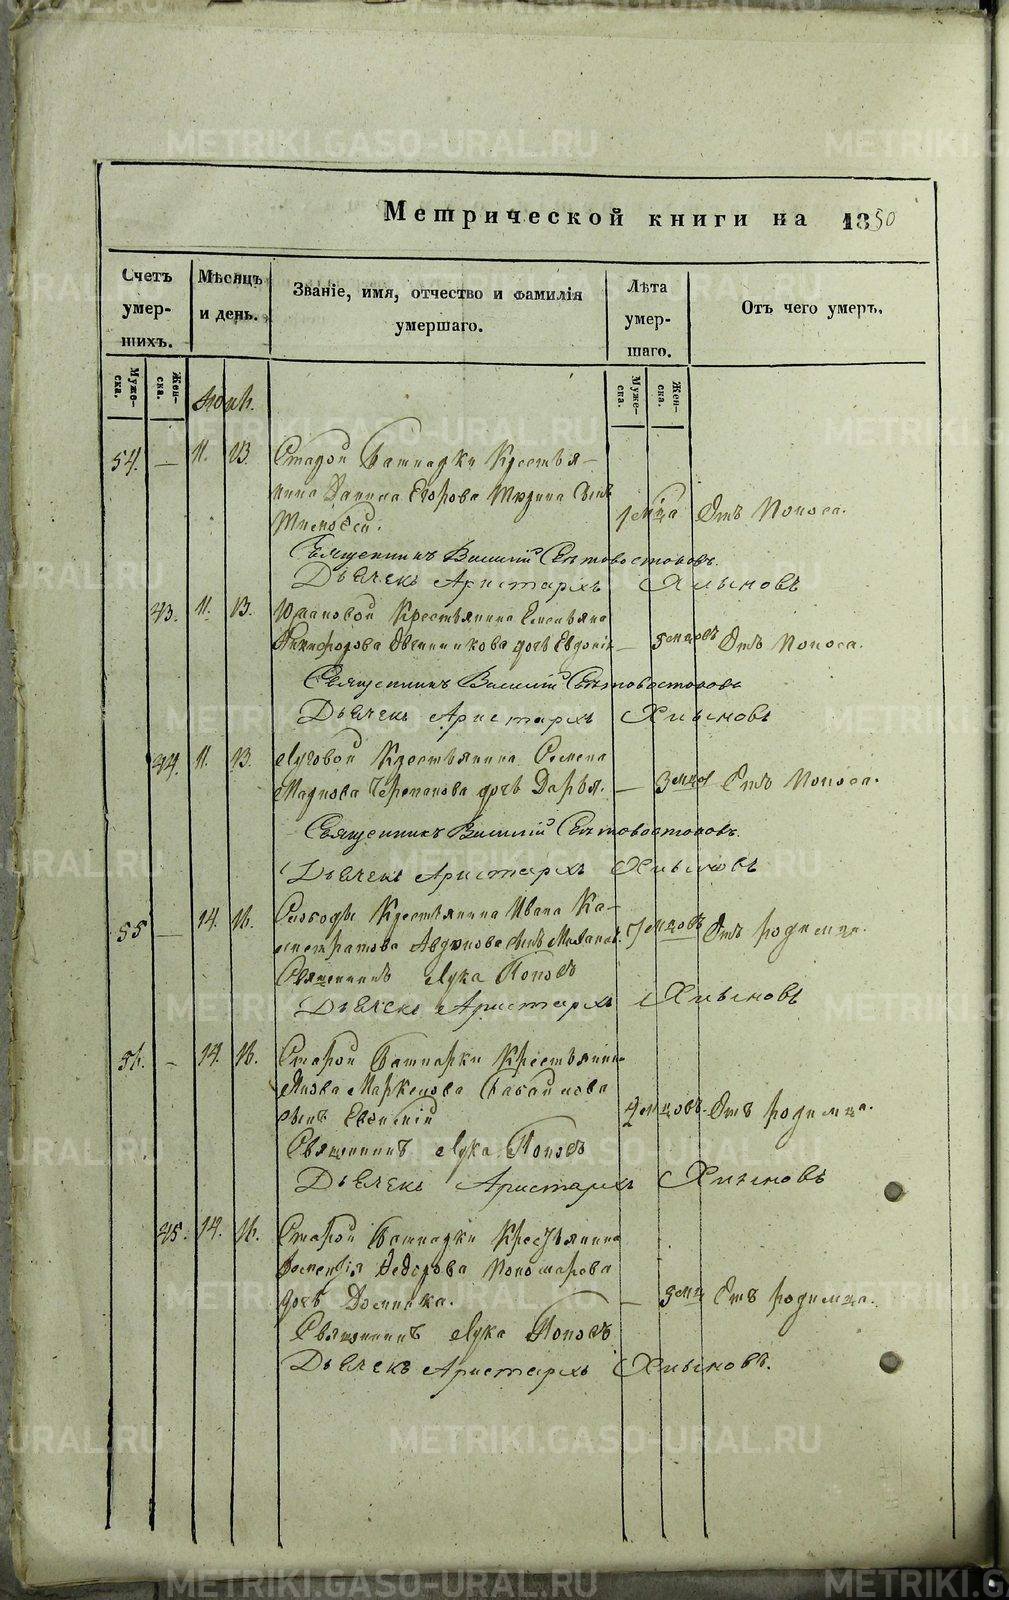 METRIKI.GASO-URAL.RU
Метрической книги на 1850
Счетъ умер-шихъ.
Мѣсяцъ и день.
Званіе, имя, отчество и фамилія умершаго.
Лѣта умер-шаго.
Отъ чего умеръ.
Муже-ска.
Жен-ска.
Муже-ска.
Жен-ска.
54. — 11. 13. Старой Башкарки Крестья-
нина Данила Егорова сынъ
1 мца Отъ Поноса.
Священникъ Василий Свѣтовостоковъ.
Дьячекъ Аристархъ Хлыновъ
43. 11. 13. Крестьянина Емельяна
Никифорова Овчинникова дочь Евдокія — 5 мцовъ Отъ Поноса.
Священникъ Василий Свѣтовостоковъ
Дьячекъ Аристархъ Хлыновъ
44. 11. 13. Луговой Крестьянина Семена
Маркова Черепанова дочь Дарья. — 3 мца Отъ Поноса.
Священникъ Василий Свѣтовостоковъ.
Дьячекъ Аристархъ Хлыновъ
55 — 14. 16. Слободы Крестьянина Ивана Ка-
листратова Авдюкова сынъ 7 мцовъ Отъ родимца.
Священникъ Лука Поповъ
Дьячекъ Аристархъ Хлыновъ
56. — 14. 16. Старой Башкарки Крестьянина
Якова Маркелова
сынъ Евгений 4 мцовъ. Отъ родимца.
Священникъ Лука Поповъ
Дьячекъ Аристархъ Хлыновъ
45. 14. 16. Старой Башкарки Крестьянина
Федорова Пономарова
дочь Домника. — 3 мц Отъ родимца.
Священникъ Лука Поповъ
Дьячекъ Аристархъ Хлыновъ.